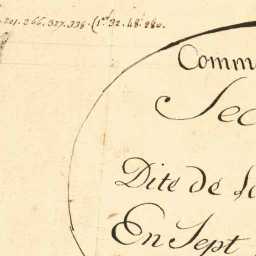 201. 266. 327. 338. (1rd 32. 48. 280.
Comm
Sec
Dite de
En Sept